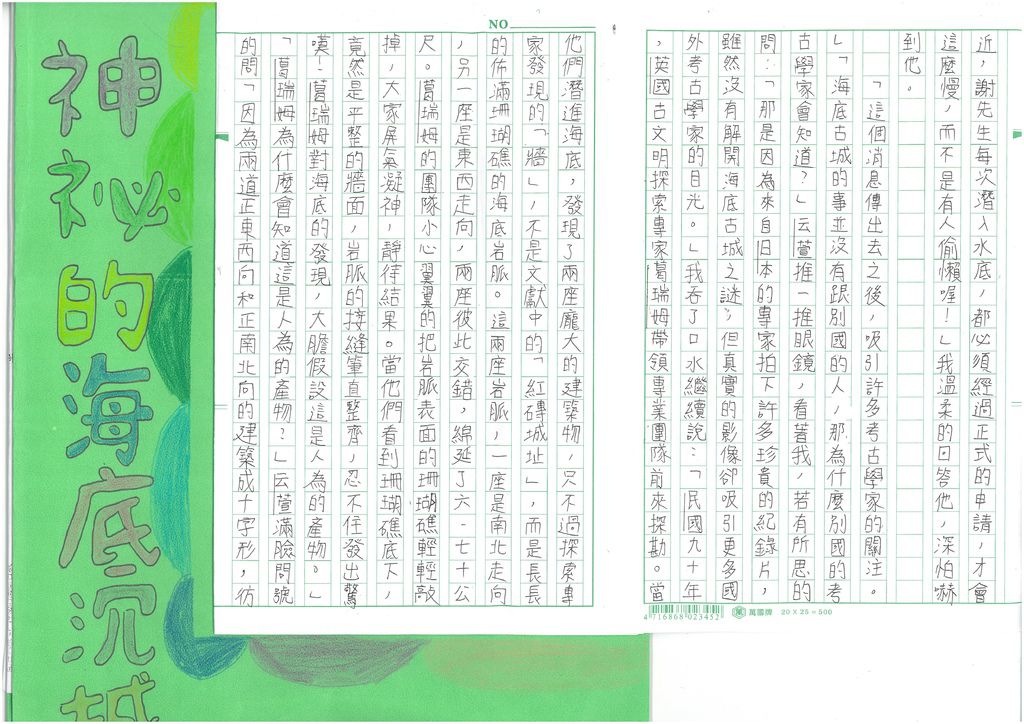 神祕的海底沉城
NO
近，謝先生每次潛入水底，都必須經過正式的申請，才會
這麼慢，而不是有人偷懶喔！」我溫柔的回答他，深怕嚇
到他。
「這個消息傳出去之後，吸引許多考古學家的關注。
」「海底古城的事並沒有跟別國的人，那為什麼別國的考
古學家會知道？」云萱推一推眼鏡，看著我，若有所思的
問：「那是因為來自日本的專家拍下許多珍貴的紀錄片，
雖然沒有解開海底古城之謎，但真實的影像卻吸引更多國
外考古學家的目光。」我吞了口水繼續說：「民國九十年
，英國古文明探索專家葛瑞姆帶領專業團隊前來探勘。當
他們潛進海底，發現了兩座龐大的建築物，只不過探索專
家發現的「牆」，不是文獻中的「紅磚城址」，而是長長
的佈滿珊瑚礁的海底岩脈。這兩座岩脈，一座是南北走向
，另一座是東西走向，兩座彼此交錯，綿延了六、七十公
尺。葛瑞姆的團隊小心翼翼的把岩脈表面的珊瑚礁輕輕敲
掉，大家屏氣凝神，靜待結果。當他們看到珊瑚礁底下，
竟然是平整的牆面，岩脈的接縫筆直整齊，忍不住發出驚
嘆！葛瑞姆對海底的發現，大膽假設這是人為的產物。」
「葛瑞姆為什麼會知道這是人為的產物？」云萱滿臉問號
的問「因為兩道正東西向和正南北向的建築成十字形，彷
4 716868 023452
萬國牌 20 X 25 = 500